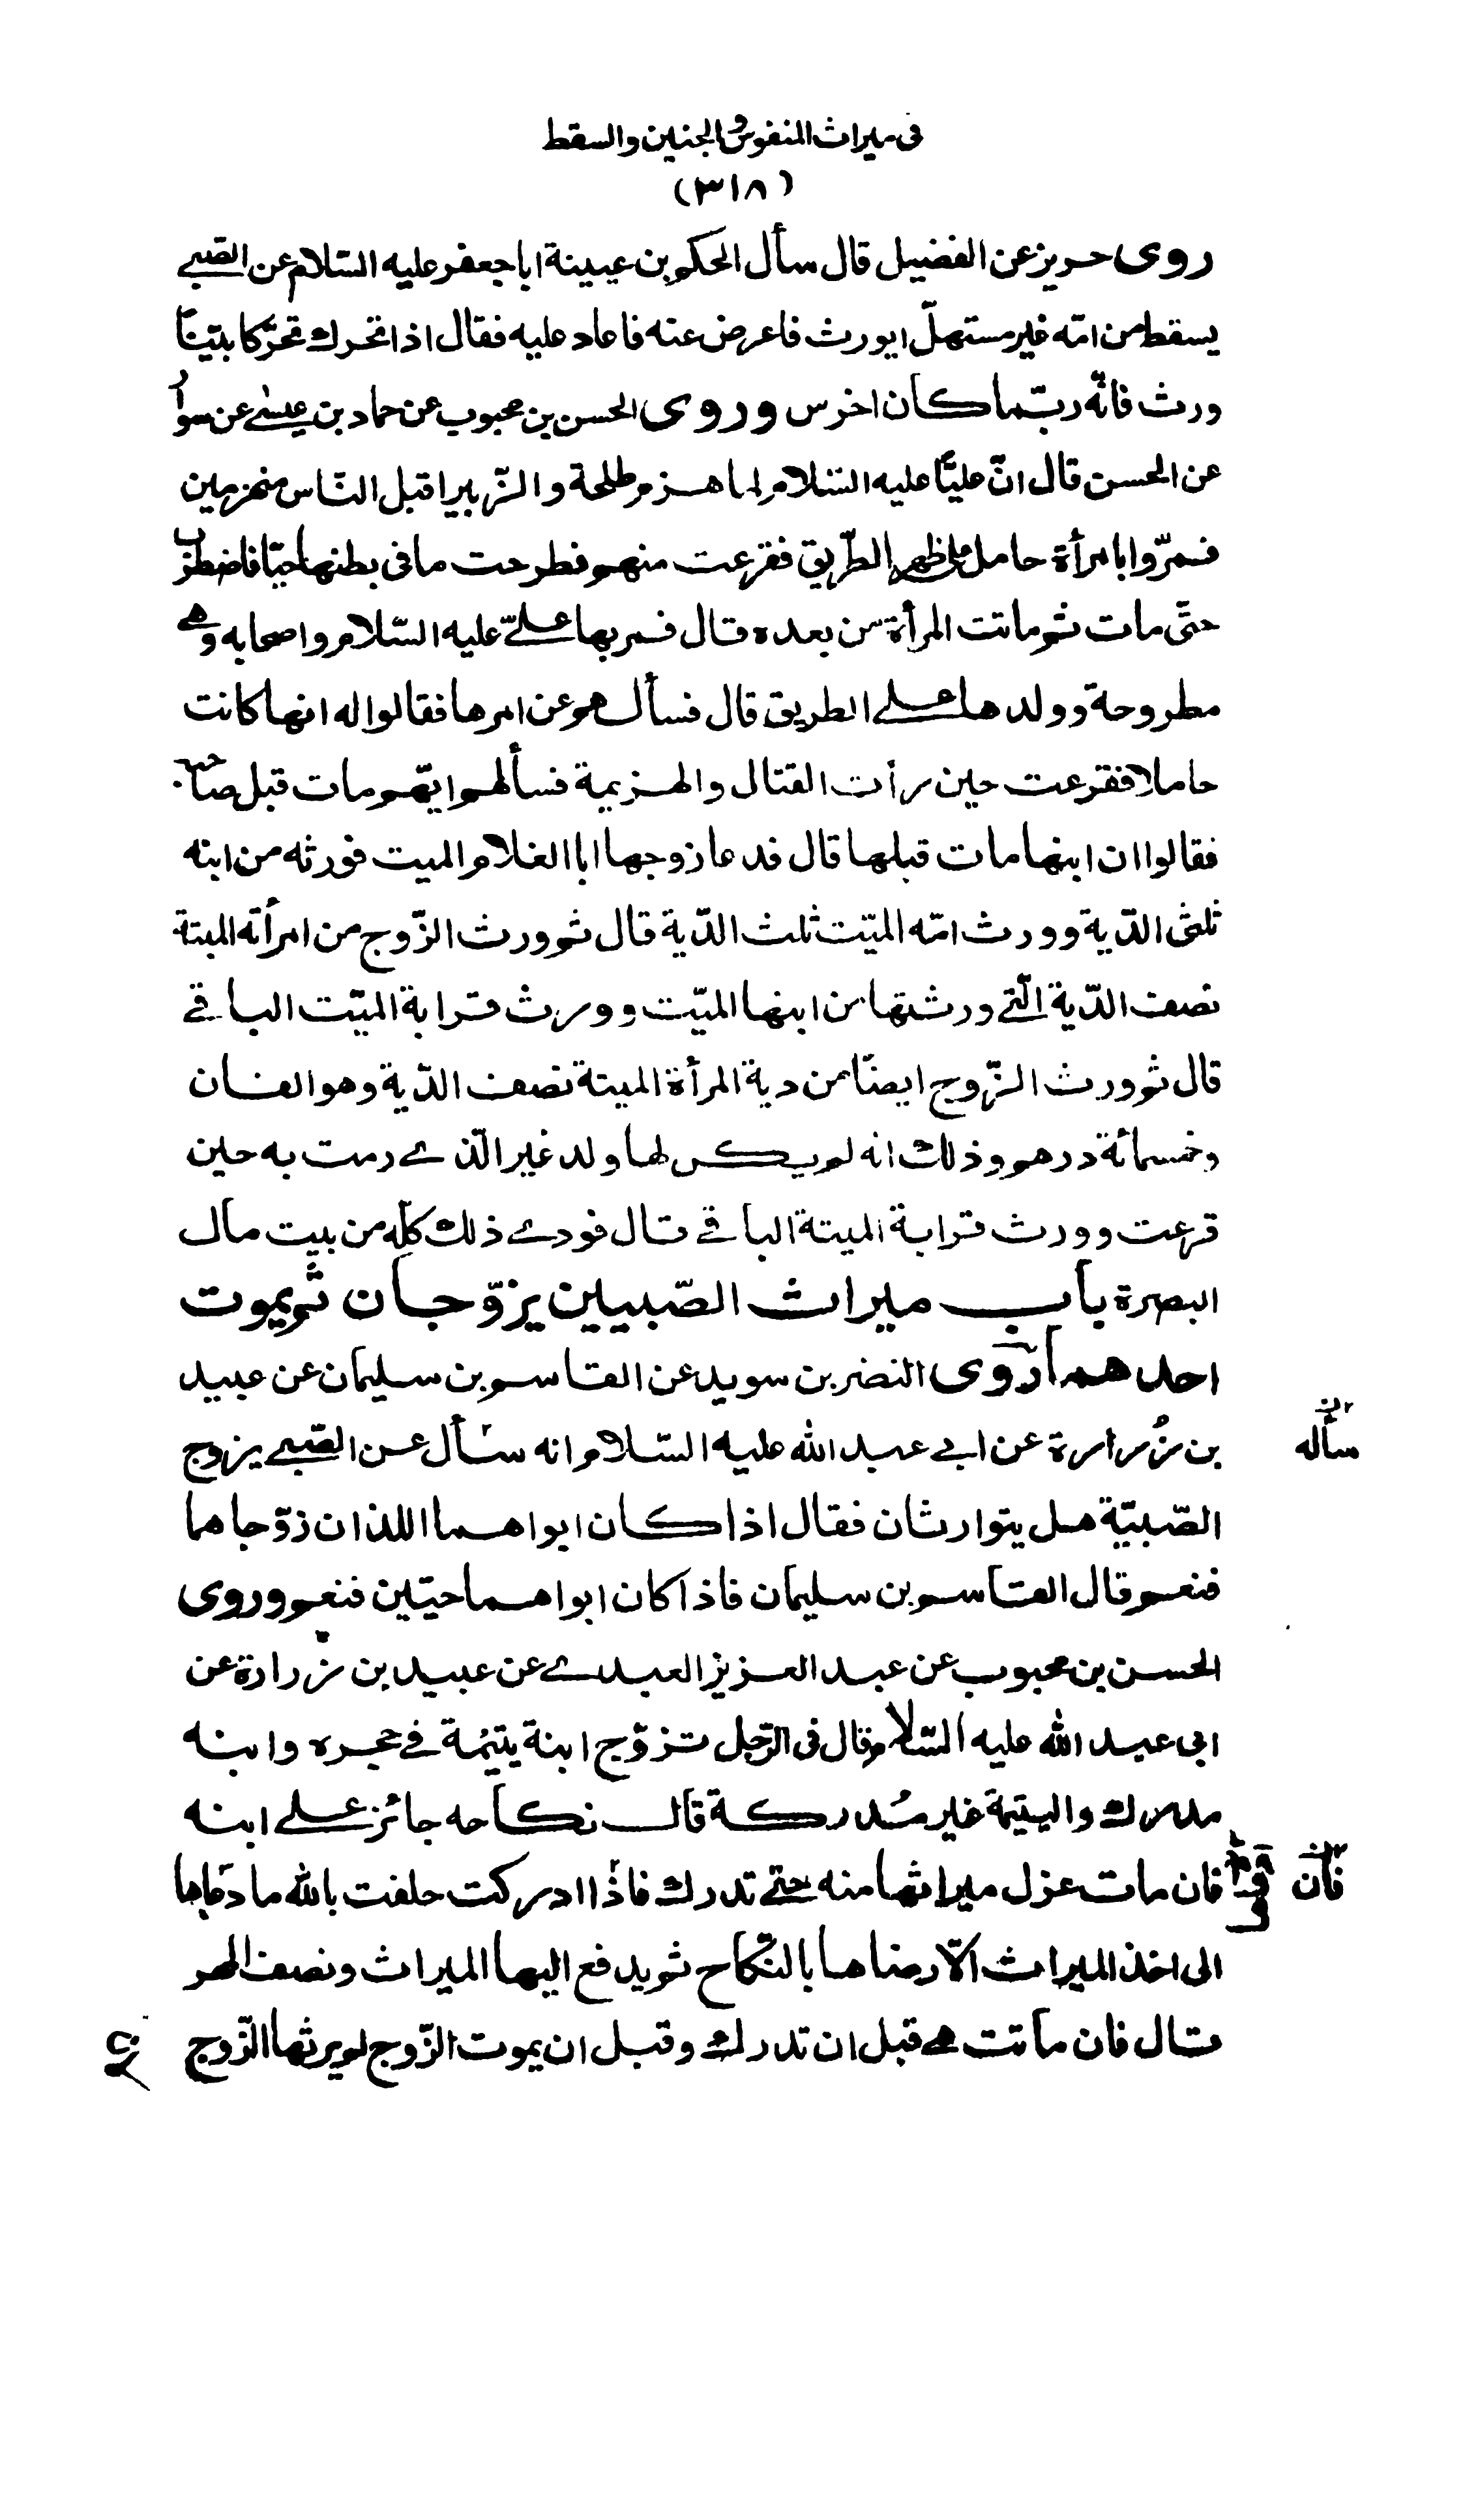 فى ميراث المنفوس والجنين والسقط
(٣١٨)
روى حريز عن الفضيل قال سأل الحكم بن عيينة ابا جعفر عليه السّلام عن الصّبي
يسقط من امّه غير مستهلّ ايورث فاعرض عنه فاعاد عليه فقال اذا تحرك تحرّكا بيّناً
ورث فانّه ربّما كان اخرس وروى الحسن بن محبوب عن حماد بن عيسٰى عن سوا
عن الحسن قال انّ عليّاً عليه السّلام لما هزم طلحة والزّبير اقبل النّاس منهزمين
فمرّوا بامرأة حامل على ظهر الطّريق ففزعت منهم فطرحت ما فى بطنها حيّا فاضطرب
حتّى مات ثم ماتت المرأة من بعده قال فمر بها علىّ عليه السّلام واصحابه وهى
مطروحة وولدها على الطريق قال فسألهم عن امرها فقالوا له انها كانت
حاملا ففزعت حين رأت القتال والهزيمة فسألهم ايّهم مات قبل صاحبه
فقالوا ان ابنها مات قبلها قال فدعا زوجها ابا الغلام الميت فورثه من ابنه
ثلثى الدّية وورث امّه الميّت ثلث الدّية قال ثم ورث الزّوج من امرأته الميتة
نصف الدّية الّتى ورثتها من ابنها الميّت وورث قرابة الميّت الباقي
قال ثم ورث الزّوج ايضاً من دية المرأة الميتة نصف الدّية وهو الفان
وخمسمائة درهم وذلك انه لم يكن لها ولد غير الّذى رمت به حين
فزعت وورث قرابة الميتة الباقي قال فودى ذلك كلّه من بيت مال
البصرة باب ميراث الصّبيين يزوّجان ثم يموت
احدهما روى النضر بن سويد عن القاسم بن سليمان عن عبيد
بن زُرارة عن ابي عبد الله عليه السّلام انه سأل عن الصّبي يزوج
سأله
الصّبيّة هل يتوارثان فقال اذا كان ابواهما اللذان زوّجاهما
فنعم قال القاسم بن سليمان فاذا كان ابواهما حيّين فنعم وروى
الحسن بن محبوب عن عبد العزيز العبدى عن عبيد بن زرارة عن
ابى عبد الله عليه السّلام قال فى الرّجل تزوّج ابنة يتيمة في حجره وابنه
مدرك واليتيمة غير مُدركة قال نكاحه جائز على ابنه
فان مات عزل ميراثها منه حتى تدرك فاذا ادركت حلفت بالله ما دعاها
فان
الى اخذ الميراث الّا رضاها بالنّكاح ثم يدفع اليها الميراث ونصف المهر
قال فان ماتت هى قبل ان تدرك وقبل ان يموت الزّوج لم يرثها الزّوج